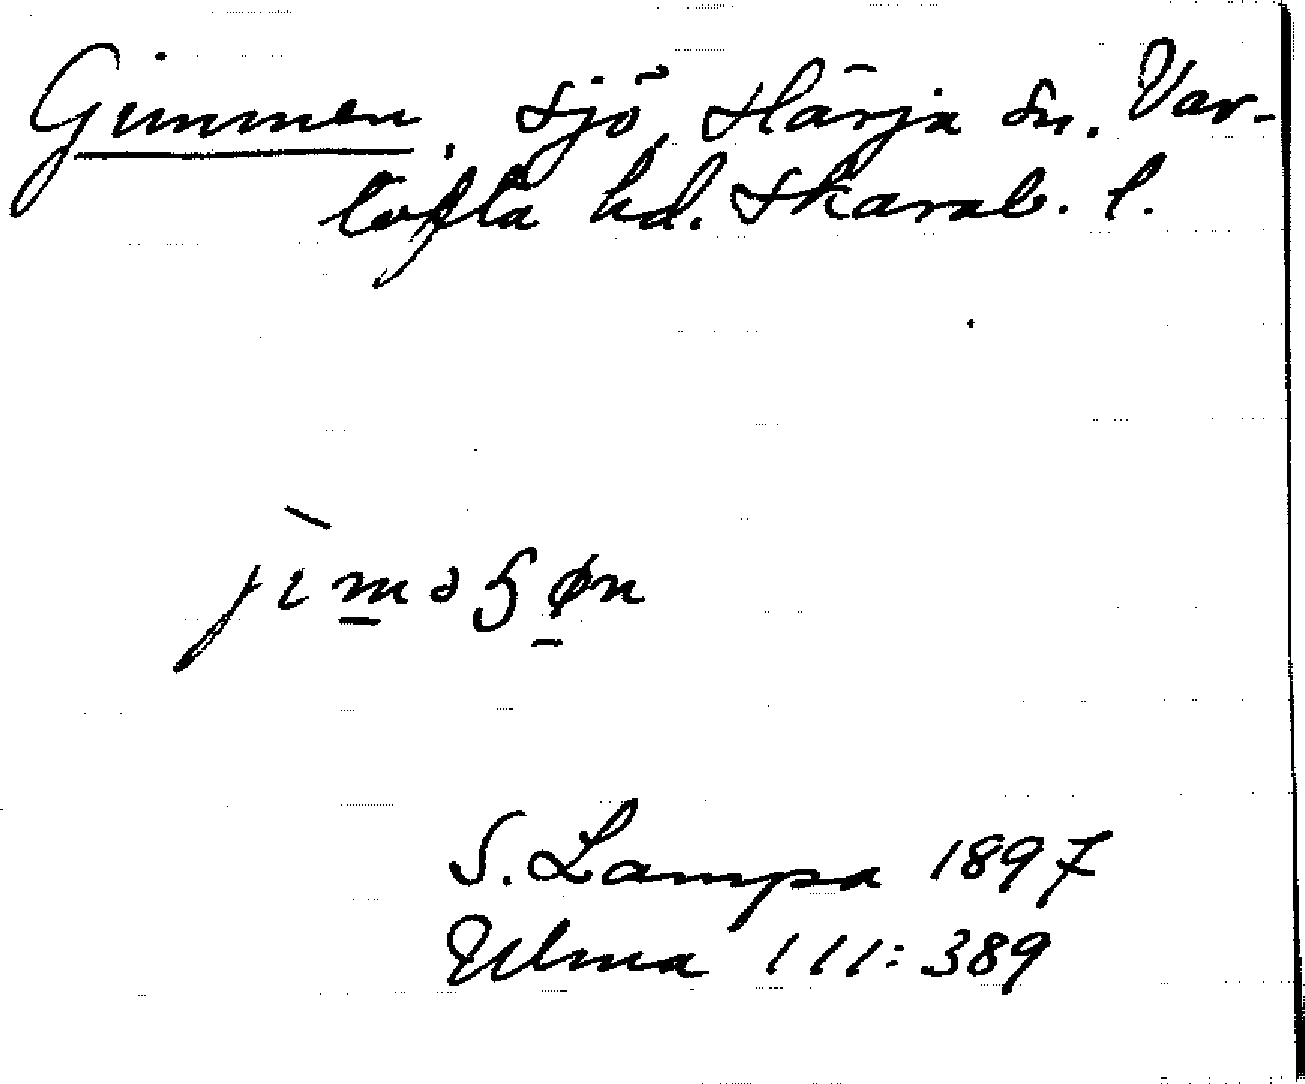 Gimmen, sjö, Härja sn. Var-
tofta hd. Skarab. l.
S. Lampa 1897
Ulma 111:389